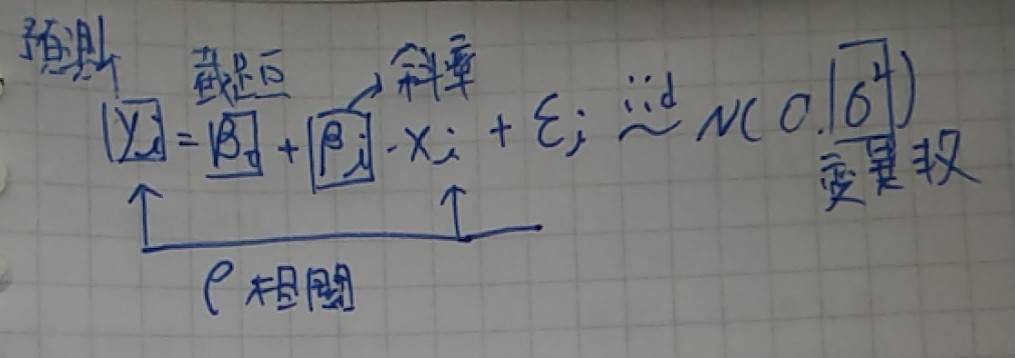 預測
截距 斜率
Yᵢ = β₀ + βⱼ · Xᵢ + εⱼ iid ~ N(0, σ⁴)
變異数
ρ 相關